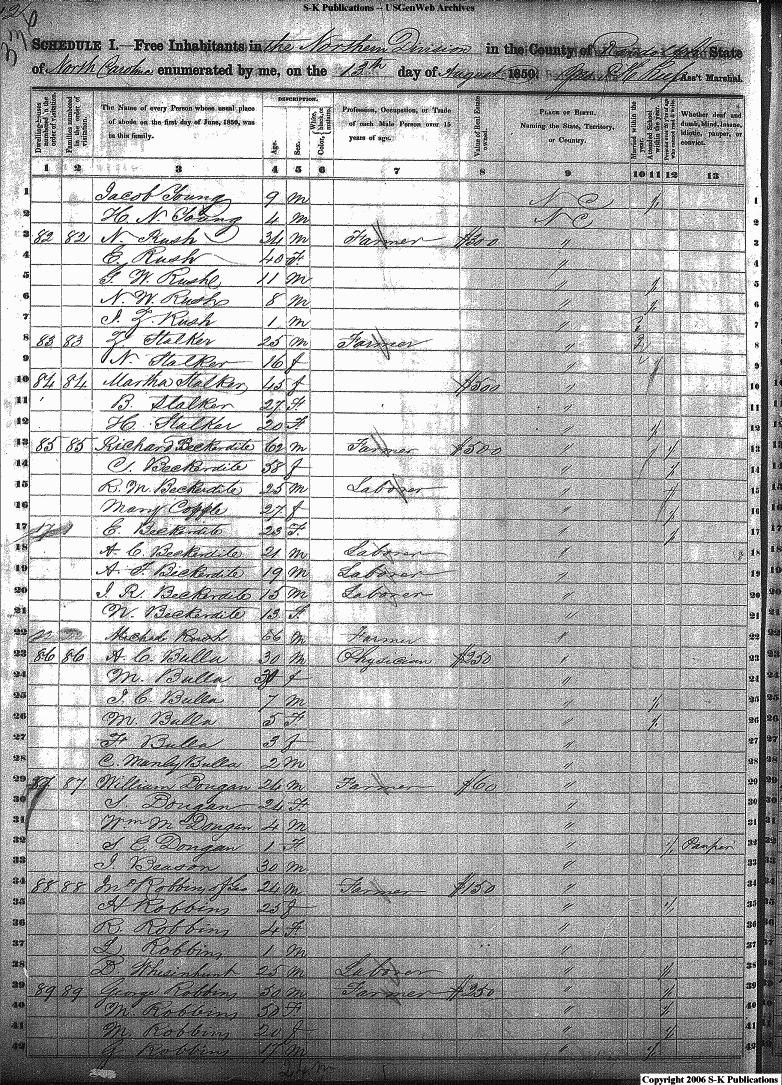 S-K Publications -- USGenWeb Archives
SCHEDULE I.—Free Inhabitants in the Northern Division in the County of Randolph State
of North Carolina enumerated by me, on the 13th day of August 1850. Ass't Marshal.
Dwelling-houses numbered in the order of visitation. Families numbered in the order of visitation. The Name of every Person whose usual place of abode on the first day of June, 1850, was in this family. DESCRIPTION. Age. Sex. Color, White, black, or mulatto. Profession, Occupation, or Trade of each Male Person over 15 years of age. Value of Real Estate owned. PLACE OF BIRTH. Naming the State, Territory, or Country. Married within the year. Attended School within the year. Whether deaf and dumb, blind, insane, idiotic, pauper, or convict.
1 2 3 4 5 6 7 8 9 10 11 12 13
1 Jacob Young 9 m N C / 1
2 H. N. Young 4 m N C 2
3 82 82 N Rush 34 m Farmer $300 " 3
4 E. Rush 40 F " 4
5 G. W. Rush 11 m " / 5
6 N. W. Rush 8 m " / 6
7 I. Z. Rush 1 m " 7
8 83 83 Z Stalker 25 m Farmer " 8
9 N Stalker 16 f " / 9
10 84 84 Martha Stalker 45 f $500 " 10
11 B Stalker 27 F " 11
12 H. Stalker 20 F " / 12
13 85 85 Richard Beckerdite 62 m Farmer $500 " / 13
14 C. Beckerdite 58 f " / 14
15 R. M. Beckerdite 25 m Laborer " / 15
16 Mary Copple 27 f " / 16
17 E. Beckerdite 23 F. " / 17
18 A. C. Beckerdite 21 m Laborer " 18
19 A. F. Beckerdite 19 m Laborer " 19
20 I R. Beckerdite 15 m Laborer " 20
21 N. Beckerdite 13 F. " 21
22 Rush 66 m Farmer " 22
23 86 86 A. C. Bulla 30 m Physician $250 " 23
24 M. Bulla f " 24
25 I. C. Bulla 7 m " / 25
26 M. Bulla 5 F. " / 26
27 F Bulla 3 f " 27
28 C. Manly Bulla 2 m " 28
29 87 87 William Dougan 24 m Farmer $60 " 29
30 S. Dougan 24 F " 30
31 Wm M Dougan 4 m " 31
32 S C Dougan 1 F " / Pauper 32
33 I Beason 30 m " 33
34 88 88 Jno Robbins of Geo 24 m Farmer $150 " 34
35 H Robbins 25 f " / 35
36 R. Robbins 4 F. " 36
37 L Robbins 1 m " 37
38 D. Whisinhunt 25 m Laborer " / 38
39 89 89 George Robbins 50 m Farmer $250 " / 39
40 M. Robbins 50 F " / 40
41 M. Robbins 20 f " / 41
42 G Robbins 17 m " / 42
Copyright 2006 S-K Publications